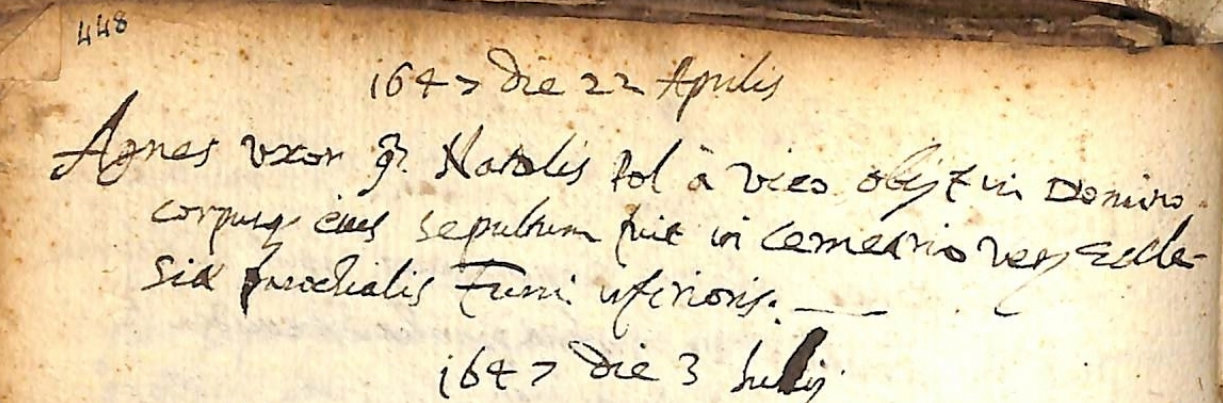 448
1647 die 22 Aprilis
Agnes uxor q. Natalis Pol à Vico obijt in Domino
corpusq. eius sepultum fuit in cemeterio Ven. Eccle-
siæ parochialis Funi inferioris.
1647 die 3 Julij